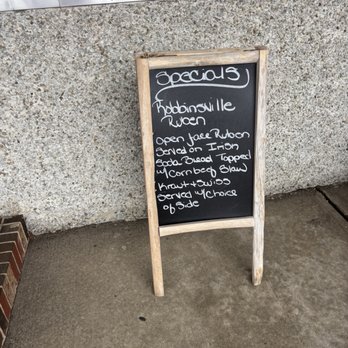 Specials
Robbinsville
Ruben
Open face Ruben
Served on Irish
Soda Bread Topped
w/Corn beef Slaw
Kraut + Swiss
Served w/Choice
of Side